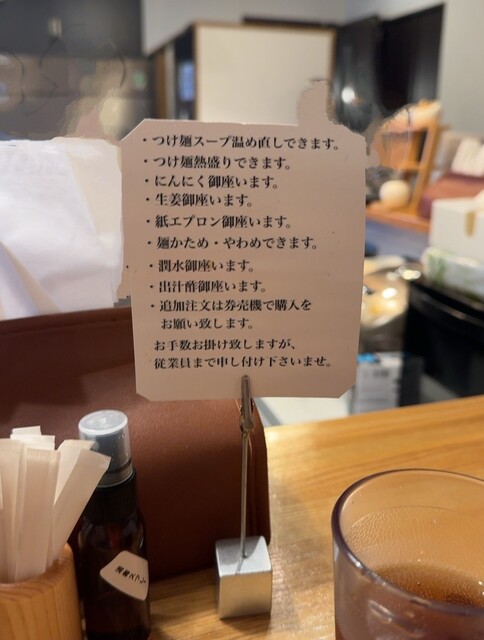 ・つけ麺スープ温め直しできます。
・つけ麺熱盛りできます。
・にんにく御座います。
・生姜御座います。
・紙エプロン御座います。
・麺かため・やわめできます。
・潤水御座います。
・出汁酢御座います。
・追加注文は券売機で購入を
お願い致します。
お手数お掛け致しますが、
従業員まで申し付け下さいませ。